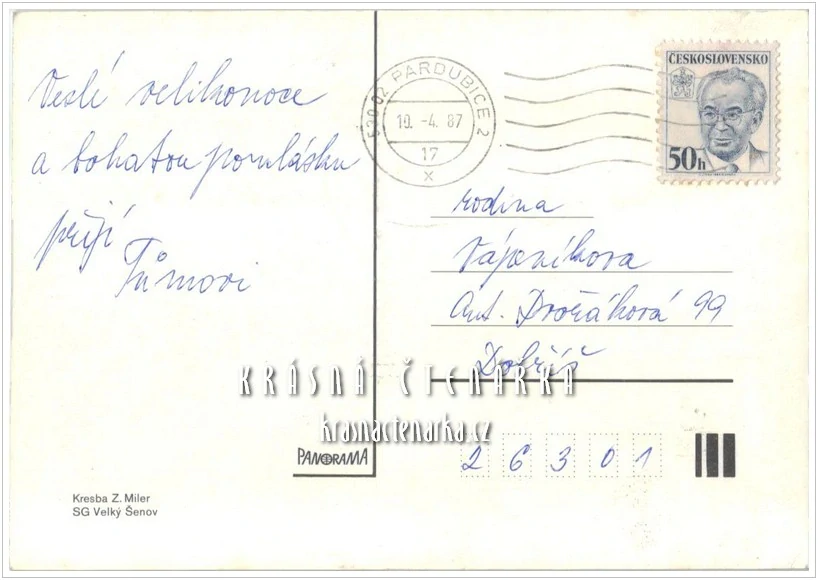 Veslé velikonoce
a bohatou pomlásku
přejí
Tůmovi
530 02 PARDUBICE 2
10. -4. 87
17
x
ČESKOSLOVENSKO
50h
rodina
Vápeníkova
Ant. Dvořáková 99
Dobříš
KRÁSNÁ ČTENÁRKA
krasnactenarka.cz
PANORAMA
26301
Kresba Z. Miler
SG Velký Šenov